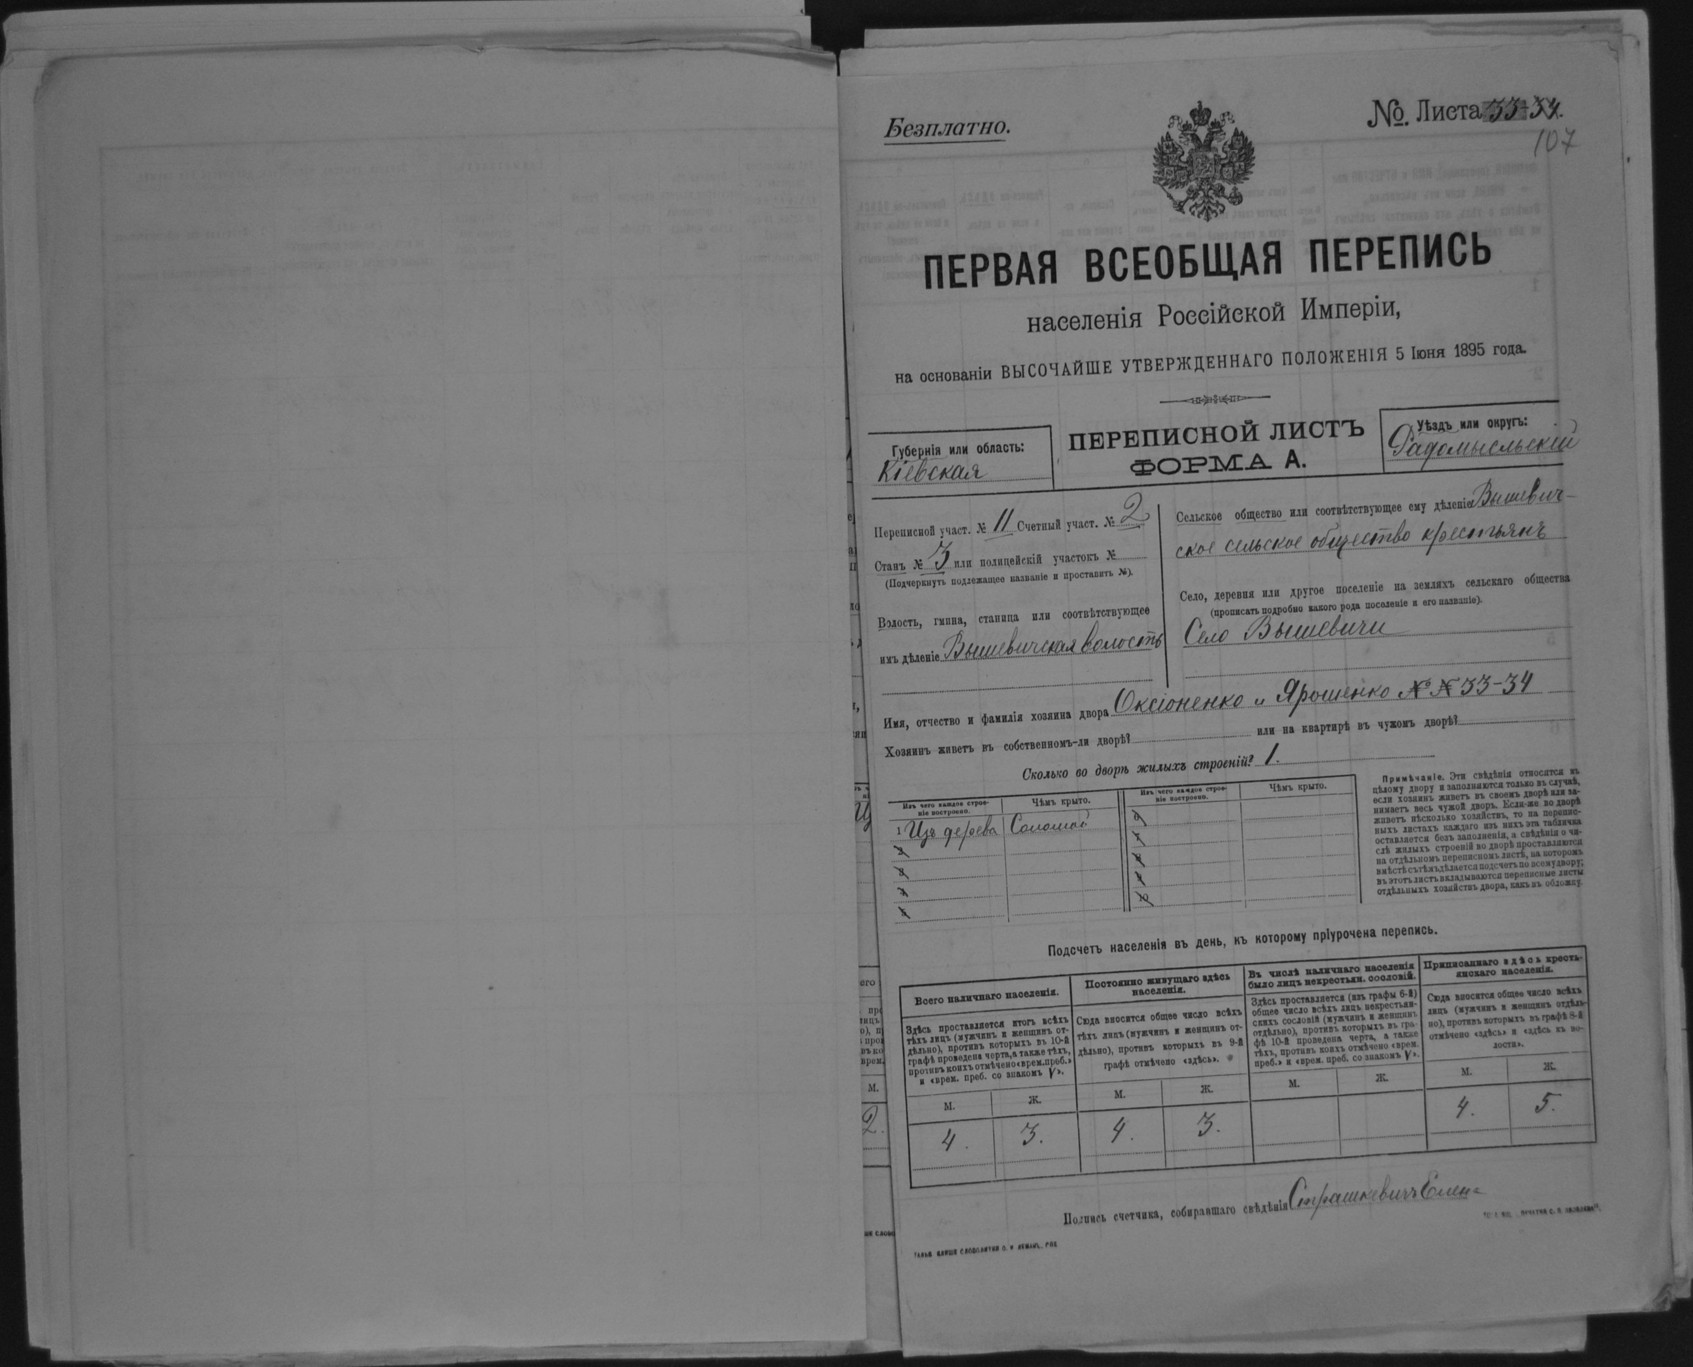 Безплатно.
№. Листа 33-34.
107
ПЕРВАЯ ВСЕОБЩАЯ ПЕРЕПИСЬ
населенія Россійской Имперіи,
на основаніи ВЫСОЧАЙШЕ УТВЕРЖДЕННАГО ПОЛОЖЕНІЯ 5 Іюня 1895 года.
Губернія или область:
Кіевская
ПЕРЕПИСНОЙ ЛИСТЪ
ФОРМА А.
Уѣздъ или округъ:
Радомысльскій
Переписной участ. № 11 Счетный участ. № 2
Станъ № 3 или полицейскій участокъ №
(Подчеркнуть подлежащее названіе и проставить №).
Волость, гмина, станица или соотвѣтствующее
имъ дѣленіе Вышевичская волость
Сельское общество или соотвѣтствующее ему дѣленіе Вышевич-
ское сельское общество крестьянъ
Село, деревня или другое поселеніе на земляхъ сельскаго общества
(прописать подробно какого рода поселеніе и его названіе).
Село Вышевичи
Имя, отчество и фамилія хозяина двора Оксіоненко и Ярошенко № № 33-34
Хозяинъ живетъ въ собственномъ-ли дворѣ? или на квартирѣ въ чужомъ дворѣ?
Сколько во дворѣ жилыхъ строеній? 1.
Изъ чего каждое строе-
ніе построено.
Чѣмъ крыто.
Изъ чего каждое строе-
ніе построено.
Чѣмъ крыто.
1 Изъ дерева Соломой
2
3
4
5
6
7
8
9
10
Примѣчаніе. Эти свѣдѣнія относятся къ
цѣлому двору и заполняются только въ случаѣ,
если хозяинъ живетъ въ своемъ дворѣ или за-
нимаетъ весь чужой дворъ. Если-же во дворѣ
живетъ нѣсколько хозяйствъ, то на перепис-
ныхъ листахъ каждаго изъ нихъ эта табличка
оставляется безъ заполненія, а свѣдѣнія о чи-
слѣ жилыхъ строеній во дворѣ проставляются
на отдѣльномъ переписномъ листѣ, на которомъ
вмѣстѣ съ тѣмъ дѣлается подсчетъ по всему двору;
въ этотъ листъ вкладываются переписные листы
отдѣльныхъ хозяйствъ двора, какъ въ обложку.
Подсчетъ населенія въ день, къ которому пріурочена перепись.
Всего наличнаго населенія.
Здѣсь проставляется итогъ всѣхъ
тѣхъ лицъ (мужчинъ и женщинъ от-
дѣльно), противъ которыхъ въ 10-й
графѣ проведена черта, а также тѣхъ,
противъ коихъ отмѣчено «врем. преб.»
и «врем. преб. со знакомъ V».
М. Ж.
4. 3.
Постоянно живущаго здѣсь
населенія.
Сюда вносится общее число всѣхъ
тѣхъ лицъ (мужчинъ и женщинъ от-
дѣльно), противъ которыхъ въ 9-й
графѣ отмѣчено «здѣсь».
М. Ж.
4. 3.
Въ числѣ наличнаго населенія
было лицъ некрестьян. сословій.
Здѣсь проставляется (изъ графы 6-й)
общее число всѣхъ лицъ некрестьян-
скихъ сословій (мужчинъ и женщинъ
отдѣльно), противъ которыхъ въ гра-
фѣ 10-й проведена черта, а также
тѣхъ, противъ коихъ отмѣчено «врем.
преб.» и «врем. преб. со знакомъ V».
М. Ж.
Приписаннаго здѣсь кресть-
янскаго населенія.
Сюда вносится общее число всѣхъ
лицъ (мужчинъ и женщинъ отдѣль-
но), противъ которыхъ въ графѣ 8-й
отмѣчено «здѣсь» и «здѣсь къ во-
лости».
М. Ж.
4. 5.
Подпись счетчика, собиравшаго свѣдѣнія Страшкевичъ